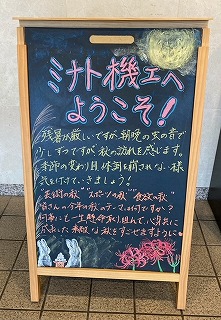 ミナト機工へ
ようこそ！
残暑が厳しいですが朝晩の虫の音で
少しずつですが秋の訪れを感じます。
季節の変わり目、体調を崩されない様
気を付けていきましょう！
"芸術の秋" "スポーツの秋" "食欲の秋"
皆さんの今年の秋のテーマは何ですか？
何事にも一生懸命取り組んで、心身共に
充実した素敵な秋をすごせますように